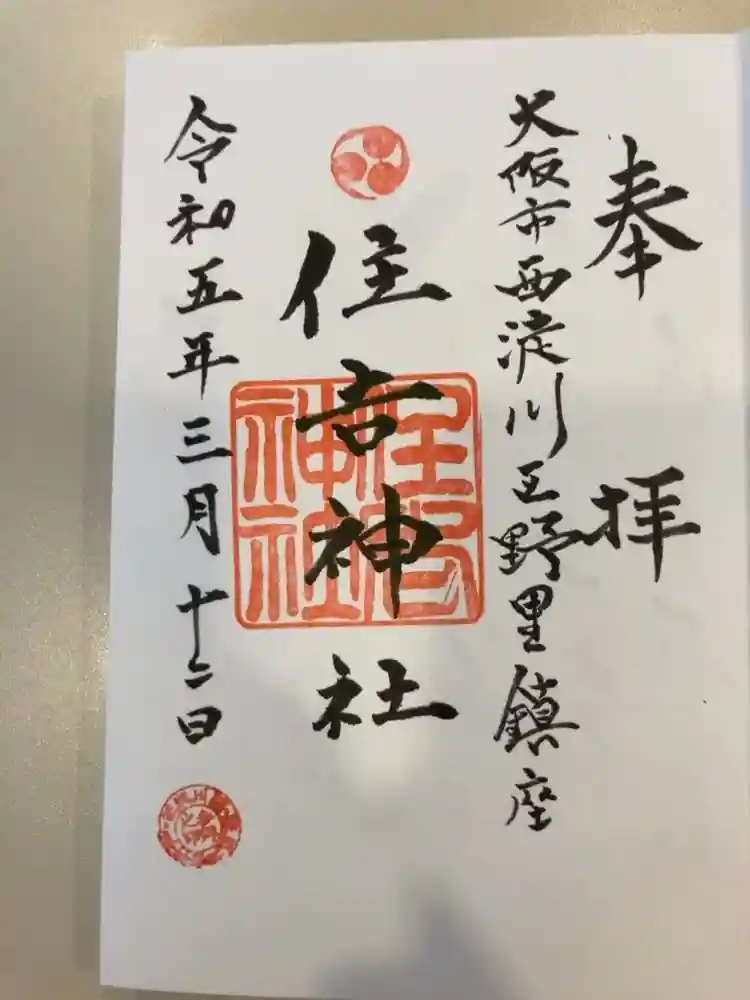 奉拝
大阪市西淀川区野里鎮座
住吉神社
住吉神社
令和五年三月十二日